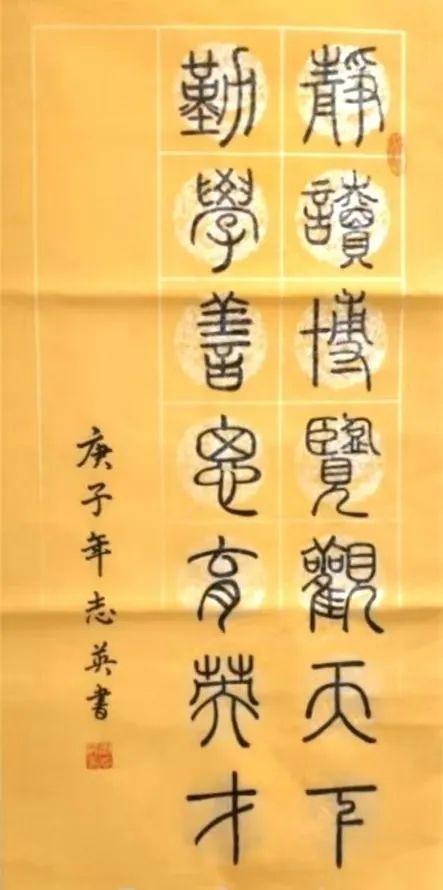 靜讀博覽觀天下
勤學善思育英才
庚子年志英書